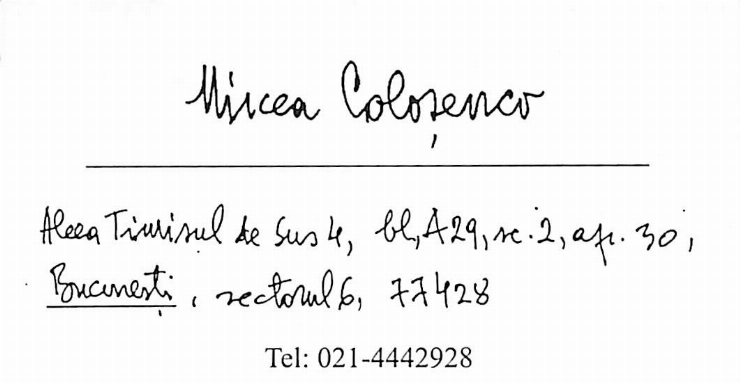 Mircea Coloșenco
Aleea Timișul de Sus 4, bl, A29, sc. 2, ap. 30,
București, sectorul 6, 77428
Tel: 021-4442928